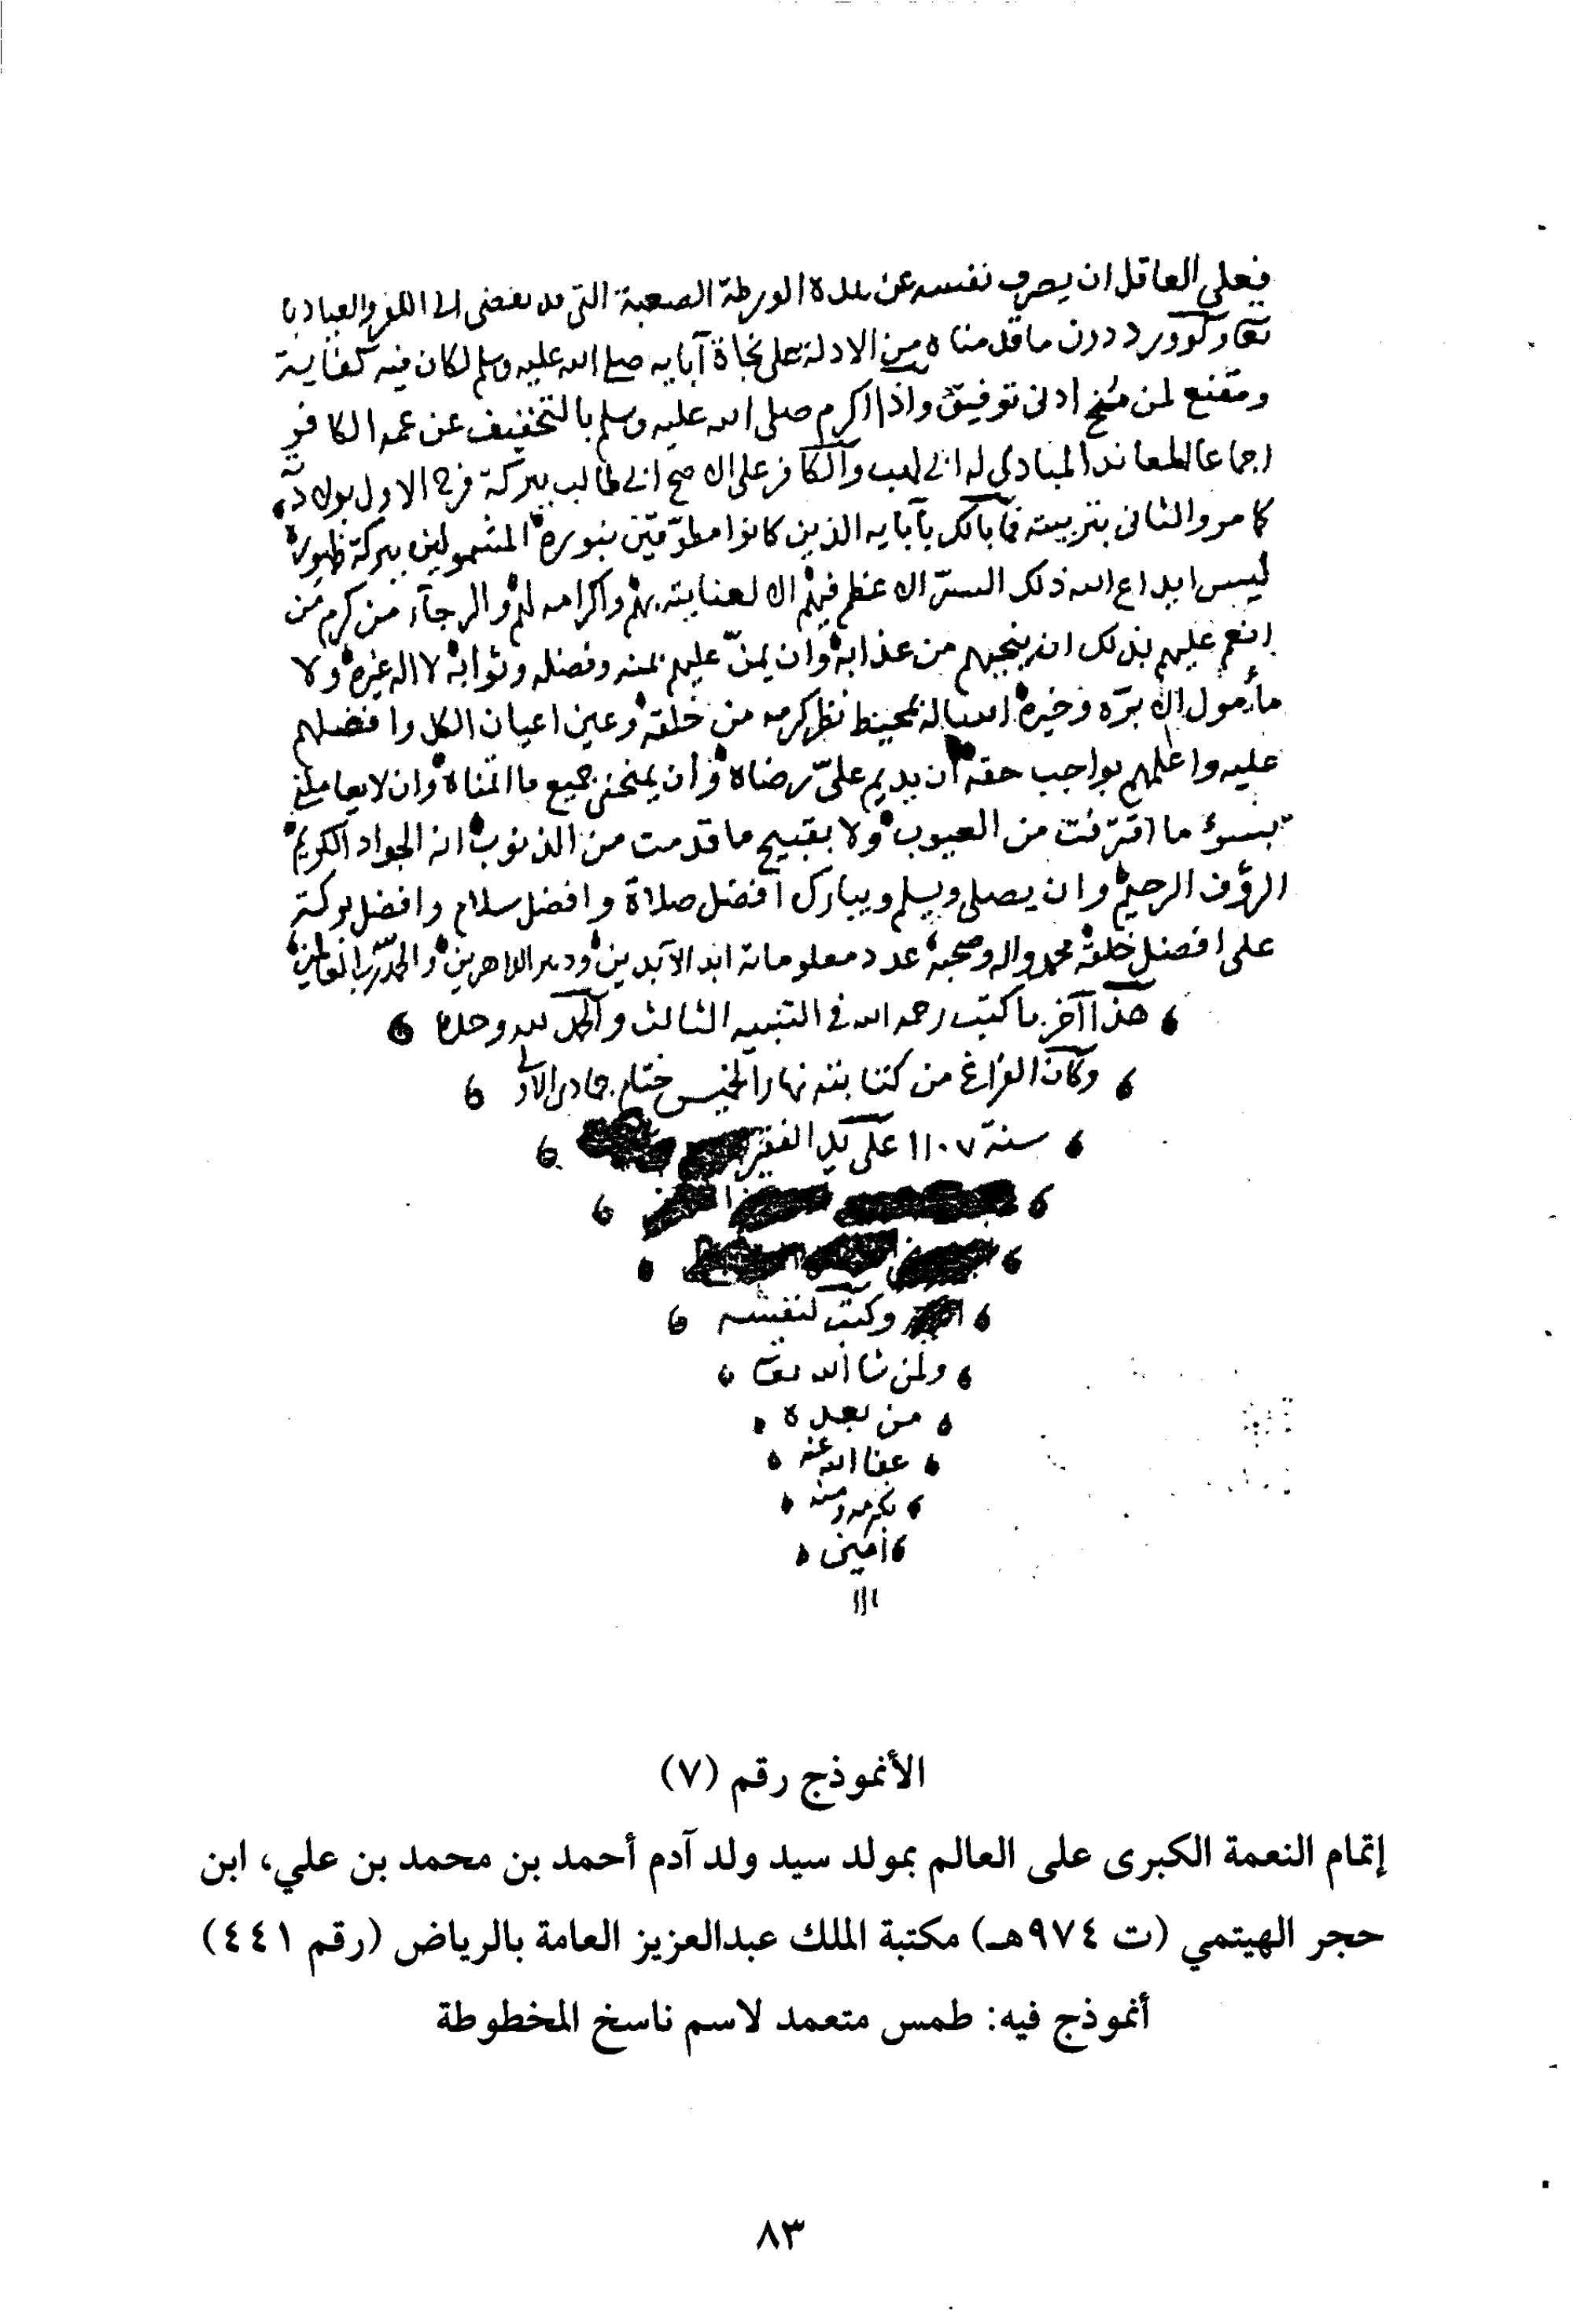 فعلى العاقل ان يصرف نفسه عن هذه الورطة الصعبة التي قد تفضى الى الكفر والعياذ با
تعا ولو ورد دون ما قدمناه من الادلة على نجاة آبايه صلى الله عليه وسلم لكان فيه كفاية
ومقنع لمن منح ادنى توفيق واذا اكرم صلى الله عليه وسلم بالتخفيف عن عمه الكافر
اجماعا المعاند المبادى له ابي لهب والكافر على الاصح ابي طالب ببركة فرح الاول بولادته
كما مر والثانى بتربيته فما بالك بآبايه الذين كانوا مطوقين بنوره المشمولين ببركة ظهوره
ليس ابداع الله ذلك السر الاعظم فيهم الا لعنايته بهم واكرامه لهم والرجآء من كرم من
انعم عليهم بذلك ان ينجيهم من عذابه وان يمنّ عليهم بمنه وفضله وثوابه لا اله غيره ولا
مأمول الا برّه وخيره اساله بمحيط نظر كرمه من خلقه وعين اعيان الكل وافضلهم
عليه واعلمهم بواجب حقه ان يديم علىّ رضاه وأن يمنحنى جميع ما اتمناه وان لا يعاملنى
بسوء ما اقترفت من العيوب ولا بقبيح ما قدمت من الذنوب انه الجواد الكريم
الرؤف الرحيم وان يصلى ويسلم ويبارك افضل صلاة وافضل سلام وافضل بركة
على افضل خلقه محمد واله وصحبه عدد معلوماته ابد الآبدين ودهر الداهرين والحمد لله رب العالمين
هذا آخر ما كتبه رحمه الله فى التنبيه الثالث والحمد لله وحده
وكان الفراغ من كتابته نهار الخميس ختام جمادى الاولى
سنة ١١٠٧ على يد الفقير
وكتبه لنفسه
ولمن شا الله تعا
من بعده
عفا الله عنه
بكرمه ومنه
امين
الأنموذج رقم (٧)
إتمام النعمة الكبرى على العالم بمولد سيد ولد آدم أحمد بن محمد بن علي، ابن
حجر الهيتمي (ت ٩٧٤هـ) مكتبة الملك عبدالعزيز العامة بالرياض (رقم ٤٤١)
أنموذج فيه: طمس متعمد لاسم ناسخ المخطوطة
٨٣